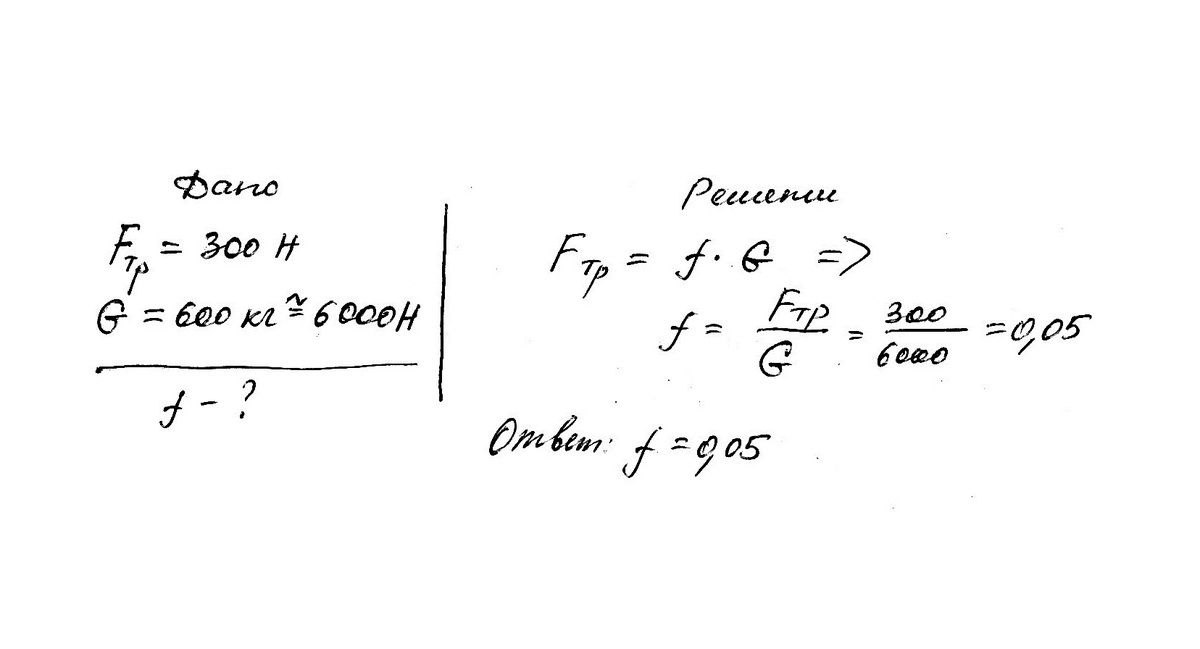 Дано
Fтр = 300 Н
G = 600 кг ≅ 6000Н
f - ?
Решени
Fтр = f · G =>
f = Fтр/G = 300/6000 = 0,05
Ответ: f = 0,05